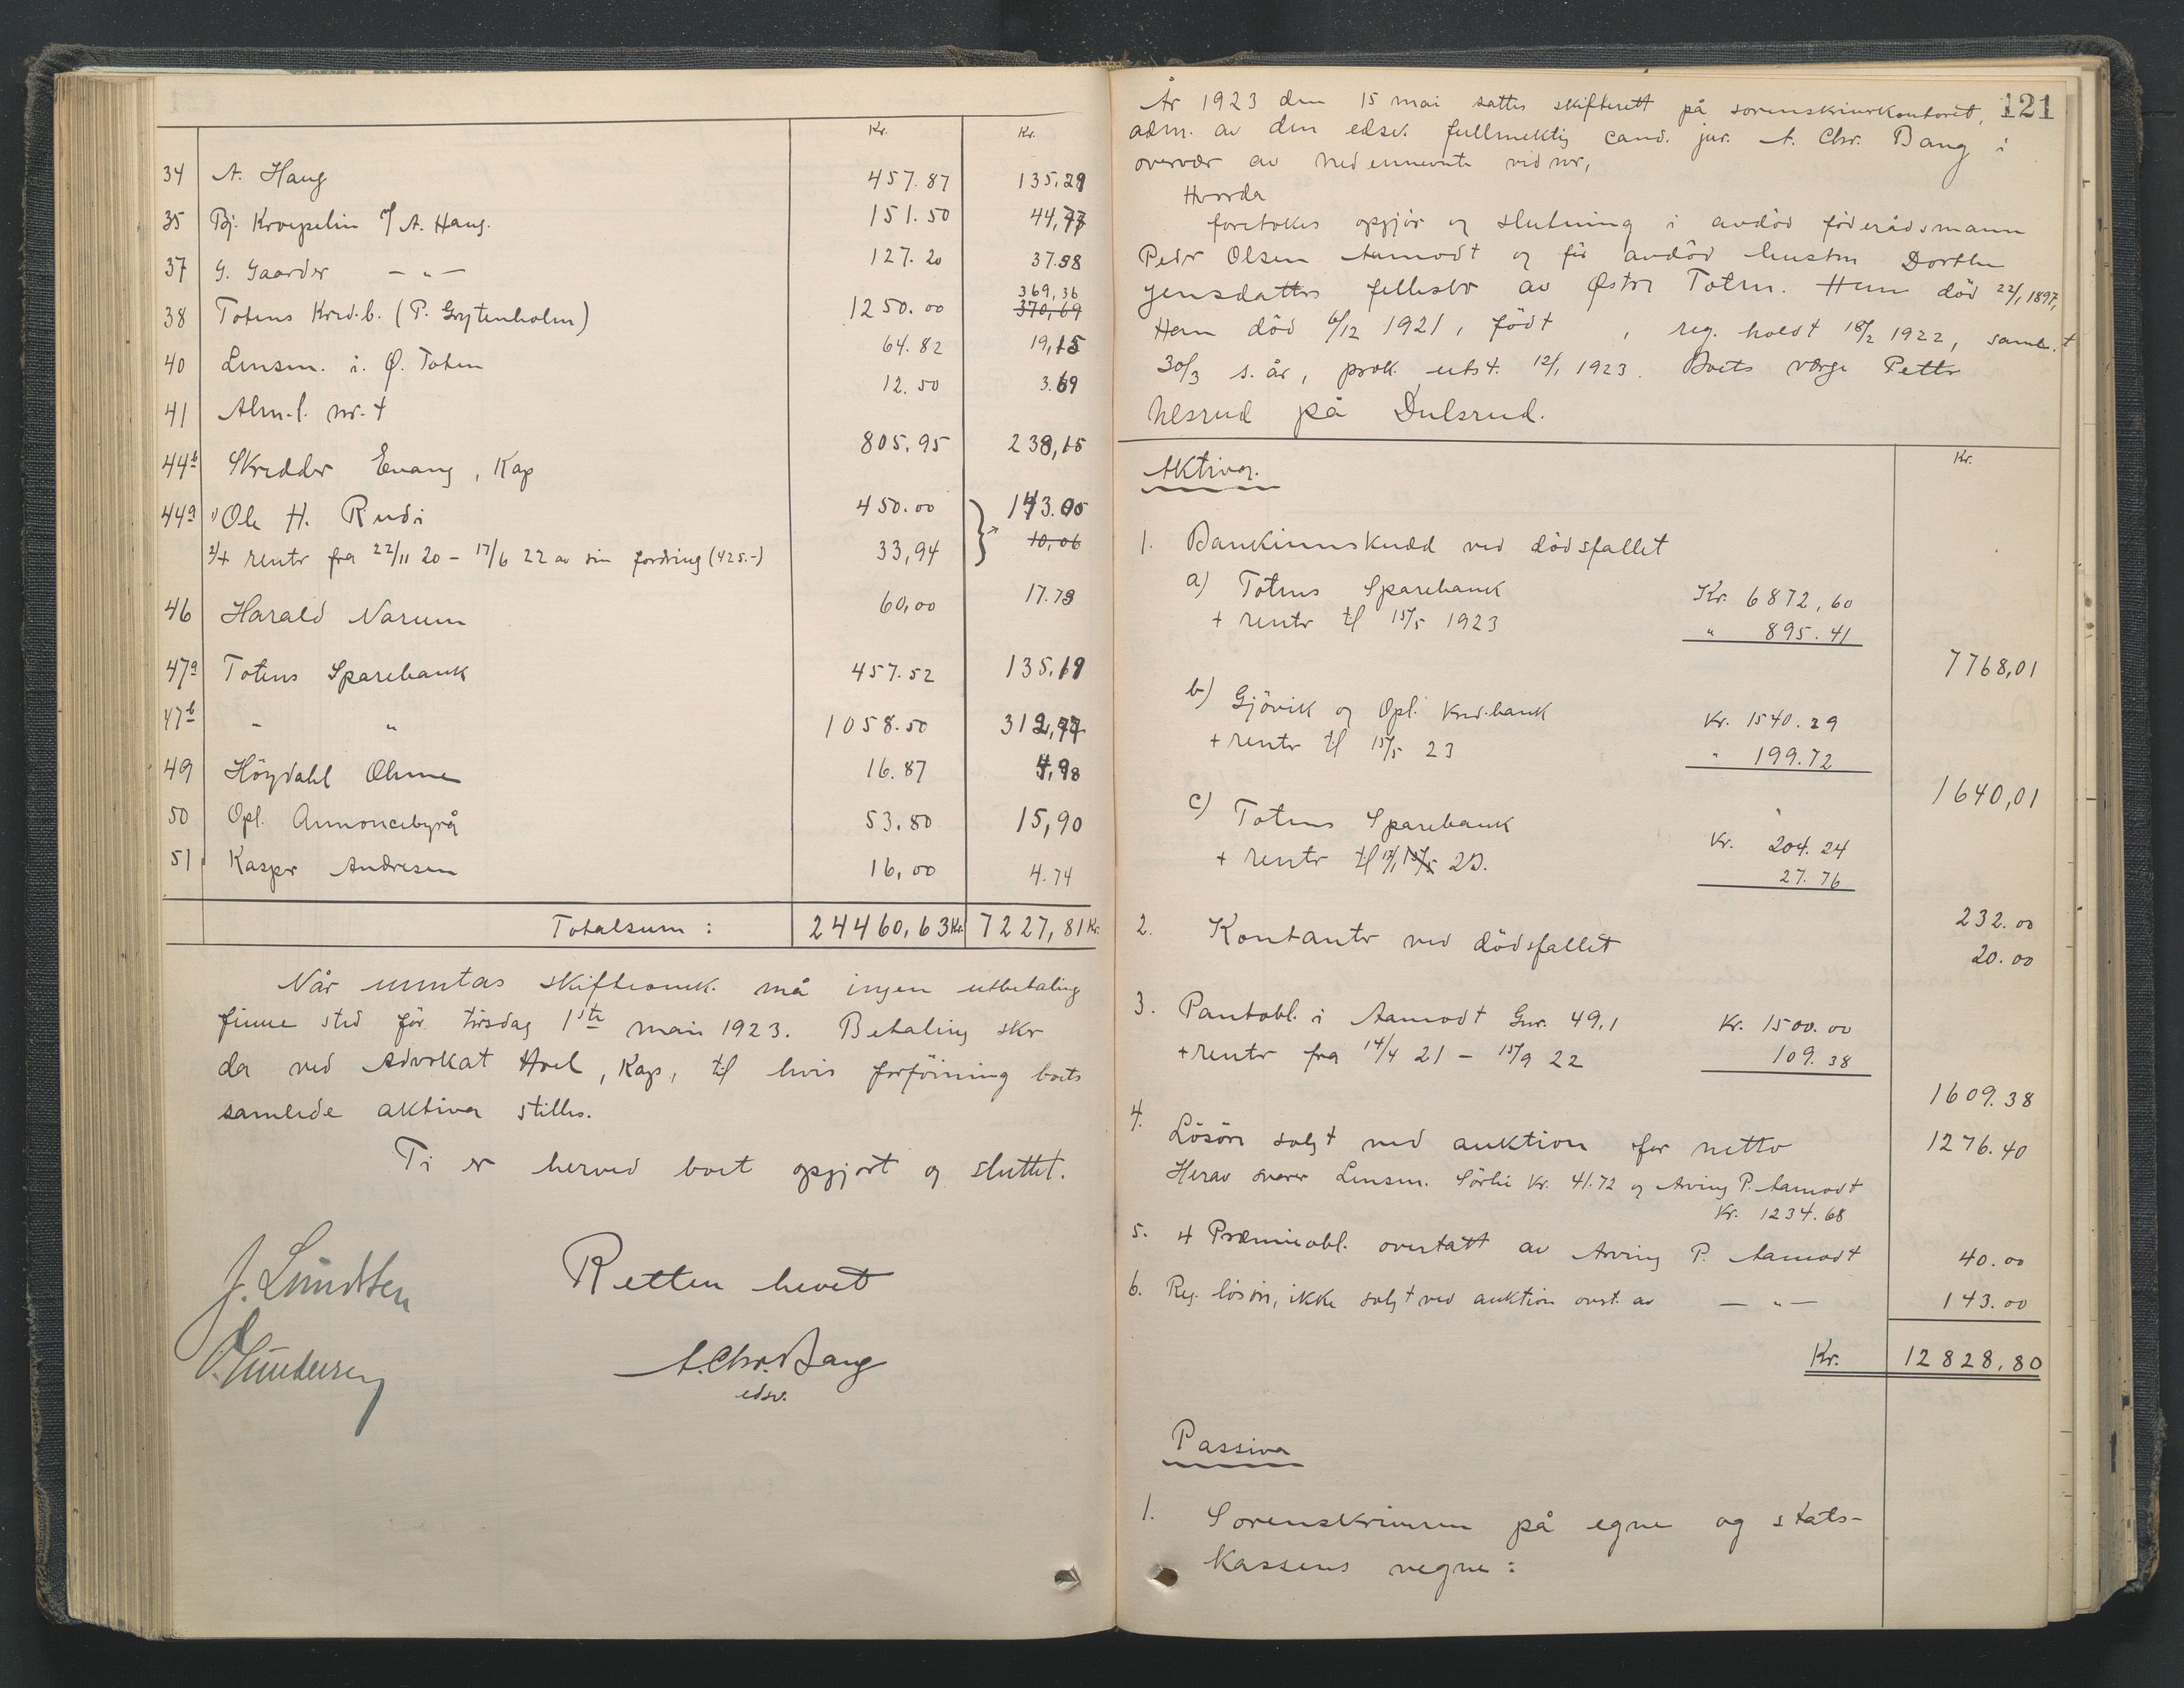 Kr. Kr.
34 A. Haug 457.87 135,29
35 Bj. Kroepelin v/ A. Haug. 151.50 44,77
37 G. Gaarder — „ — 127.20 37.58
369,36
38 Totens Kred.b. (P. Grytenholm) 1250.00 370,69
40 Lensm. i. Ø. Toten 64.82 19,15
41 Alm.l. nr. t 12.50 3.69
44b Skredder Evang, Kap 805.95 238,15
44a 1) Ole H. Rudi 450.00 143.00
2) + renter fra 22/11 20 – 17/6 22 av sin fordring (425.-) 33,94 10,06
46 Harald Narum 60,00 17.73
47a Totens Sparebank 457.52 135,19
47b – „ 1058.50 312,77
49 Höydahl Ohme 16.87 4,98
50 Opl. Annoncebyrå 53.80 15,90
51 Kasper Andresen 16,00 4.74
Totalsum: 24460,63 Kr. 7227,81 Kr.
Når unntas skifteomk. må ingen utbetaling
finne sted før tirsdag 1ste mai 1923. Betaling sker
da ved Advokat Hoel, Kap, til hvis forföining boets
samlede aktiva stilles.
Ti er herved boet opgjort og sluttet.
J. Lundsten
Retten hevet
O. Gundersen
A. Chr. Bang
edsv.
121
År 1923 den 15 mai sattes skifterett på sorenskriverkontoret,
adm. av den edsv. fullmektig cand. jur. A. Chr. Bang i
overvær av nedennevnte vidner,
Hvorda
foretokes opgjör og slutning i avdöd föderådsmann
Peder Olsen Aamodt og før avdöd hustru Dorthe
Jensdatters fellesbo av Østre Toten. Hun död 22/1 1897,
Han död 6/12 1921, födt , reg. holdt 18/2 1922, saml. t
30/3 s. år, prok. utst. 12/1 1923. Boets værge Petter
helsrud på Dulsrud.
Aktiva. Kr.
1. Bankinnskudd ved dödsfallet
a) Totens Sparebank Kr. 6872,60
+ renter til 15/5 1923 „ 895.41
7768,01
b) Gjövik og Opl. Kred.bank Kr. 1540.29
+ renter til 15/5 23 „ 199.72
1640,01
c) Totens Sparebank Kr. 204.24
+ renter til 15/5 23. 27.76
232.00
2. Kontanter ved dödsfallet 20.00
3. Pantobl. i Aamodt Gnr. 49,1 Kr. 1500.00
+ renter fra 14/4 21 – 15/9 22 109.38
1609.38
4. Lösöre solgt ved auktion for netto 1276.40
Herav svarer Lensm. Sörlie Kr. 41.72 og Arving P. Aamodt
Kr. 1234.68
5. 4 Premieobl. overtatt av Arving P. Aamodt 40.00
6. Reg. lösöre, ikke solgt ved auktion overt. av — „ — 143.00
Kr. 12828,80
Passiva
1. Sorenskriveren på egne og stats-
kassens vegne: